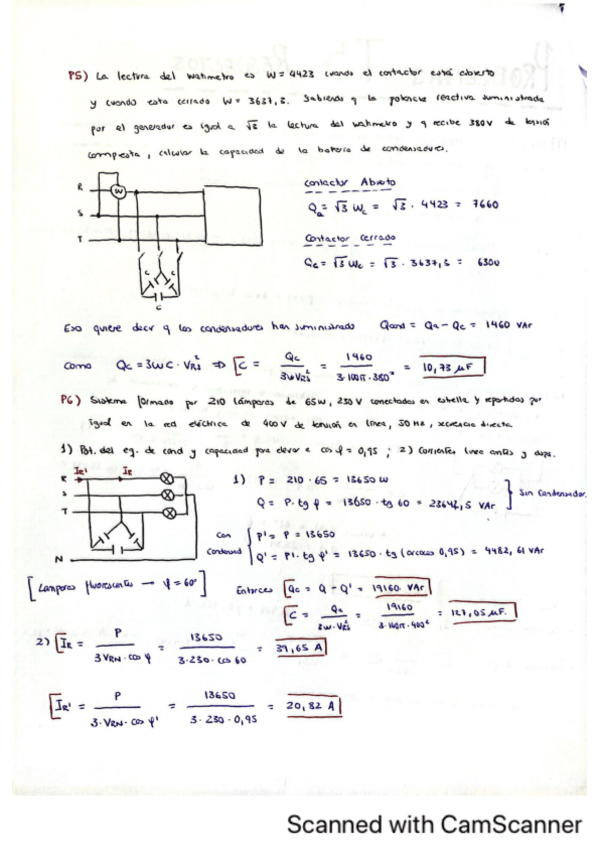 P5) La lectura del watimetro es W = 4423 cuando el contactor está abierto
y cuando esta cerrado W = 3637,3. Sabiendo q la potencia reactiva suministrada
por el generador es igual a √3 la lectura del watimetro y q recibe 380V de tensión
compuesta, calcular la capacidad de la bateria de condensadores.
R
W
S
T
C C
C
Contactor Abierto
Qa = √3 Wc = √3 · 4423 = 7660
Contactor Cerrado
Qc = √3 Wc = √3 · 3637,3 = 6300
Eso quiere decir q los condensadores han suministrado Qcond = Qa - Qc = 1460 VAr
Como Qc = 3WC · VRS² ⇒ C = Qc / 3WVRS² = 1460 / 3·100π·380² = 10,73 µF
P6) Sistema formado por 210 lámparas de 65W, 230V conectadas en estrella y repartidas por
igual en la red eléctrica de 400V de tensión en línea, 50 Hz, secuencia directa.
1) Pot. del eq. de cond y capacidad para elevar a cos φ = 0,95 ; 2) Corrientes linea antes y dsps.
IR' IR
R
S
T
N
1) P = 210 · 65 = 13650 W
Q = P · tg φ = 13650 · tg 60 = 23642,5 VAr
Sin Condensador.
Con Condensad
P' = P = 13650
Q' = P' · tg φ' = 13650 · tg (arccos 0,95) = 4482,61 VAr
[Lamparas fluorescentes → φ = 60°]
Entonces Qc = Q - Q' = 19160 VAr
C = Qc / 3W·VRS² = 19160 / 3·100π·400² = 127,05 µF.
2) IR = P / 3VRN · cos φ = 13650 / 3·230·cos 60 = 39,65 A
IR' = P / 3·VRN·cos φ' = 13650 / 3·230·0,95 = 20,82 A
Scanned with CamScanner